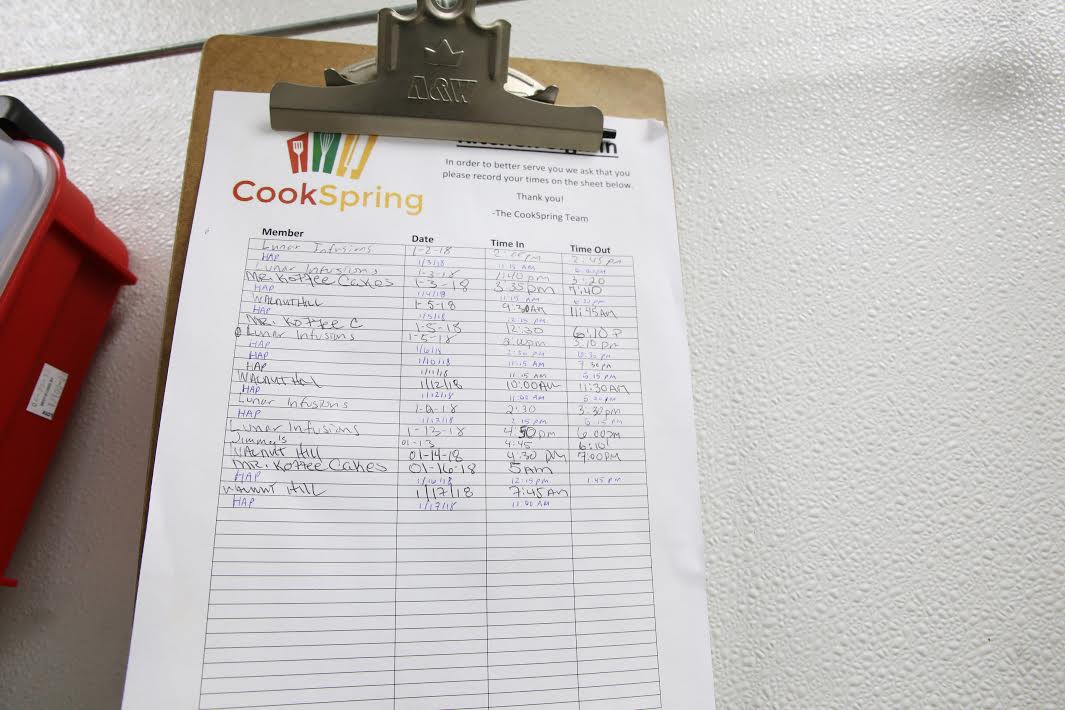 A&W
In order to better serve you we ask that you
please record your times on the sheet below.
Thank you!
-The CookSpring Team
CookSpring
Member Date Time In Time Out
Lunar Infusions 1-2-18 2:45 pm
HAP 1/3/18 11:15 AM
Lunar Infusions 1-3-18 1:40 pm 5:20
MR. Koffee Cakes 1-3-18 3:35pm 7:40
HAP 1/4/18 11:15 AM
WALNUT HILL 1-5-18 9:30AM 11:45AM
HAP 1/5/18 12:15 PM
MR. Koffee C 1-5-18 12:30 6:10 P
Lunar Infusions 1-5-18 3:10 pm
HAP 1/6/18 2:30 PM
HAP 1/10/18 11:15 AM 7:30 PM
HAP 1/11/18 11:15 AM 5:15 PM
WALNUT Hill 1/12/18 10:00AM 11:30AM
HAP 1/12/18 11:00 AM
Lunar Infusions 2:30 3:30pm
HAP 2:15 PM 6:15 PM
Lunar Infusions 1-13-18 4:50pm 6:00pm
Jimmy's 01-13 4:45 6:10
WALNUT Hill 01-14-18 4:30 PM 7:00PM
MR. Koffee Cakes 01-16-18 5am
HAP 1/16/18 12:15 PM 1:45 PM
WALNUT Hill 1/17/18 7:45AM
HAP 1/17/18 11:00 AM